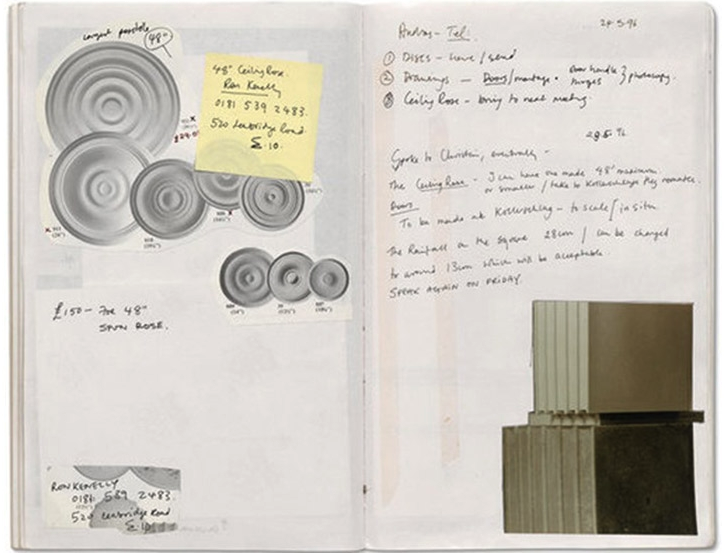 largest possible
48"
48" Ceiling Rose.
Ron Kenelly
0181 539 2483.
520 Leabridge Road.
E.10.
£150 - For 48"
SPUN ROSE.
RON KENELLY
0181 539 2483.
520 Leabridge Road
E.10
Andras - Tel:
24.5.96
① DISCS - have / send
② Drawings - Doors / montage • Door handle hinges } photocopy.
③ Ceiling Rose - bring to next meeting.
28.5.96
Spoke to Christin, eventually -
The Ceiling Rose - I can have one made 48" maximum
or smaller / take to Kollerschlag they
Doors
To be made at Kollerschlag - to scale / in situ
The Rainfall on the square 28cm / can be changed
to around 13cm which will be acceptable.
SPEAK AGAIN ON FRIDAY.